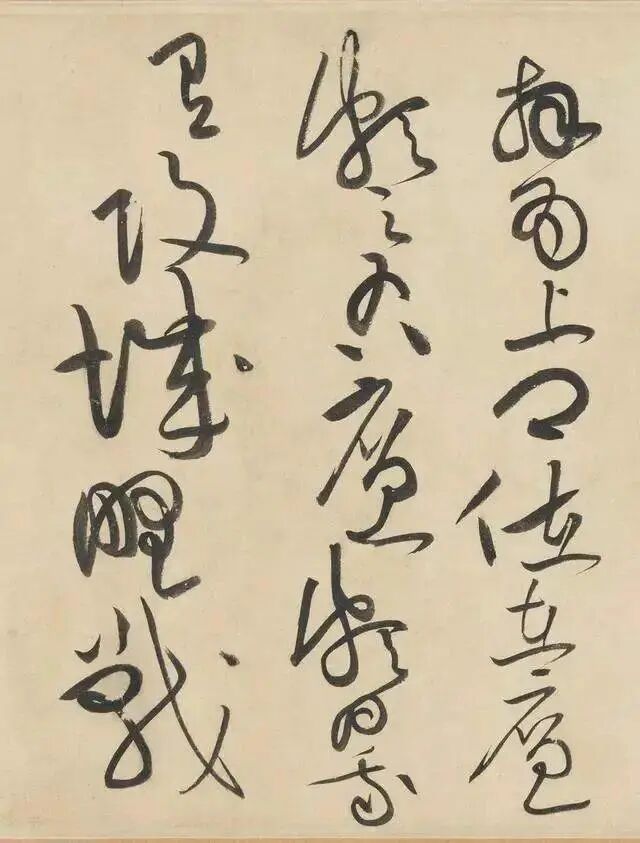 拜為上卿位在廉
頗之右廉頗曰我
有攻城野戰